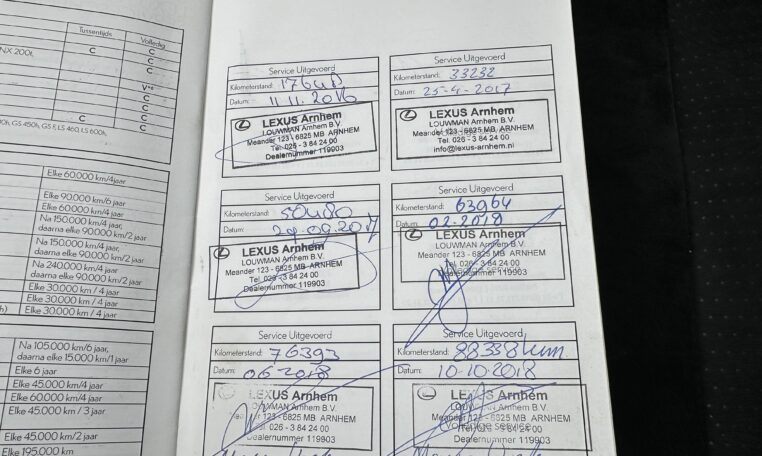 Tussentijds
Volledig
NX 200t,
C
C
C
C
V**
C
C
C
0h, GS 450h, GS F, LS 460, LS 600h,
C
C
Elke 60.000 km/4jaar
Elke 90.000 km/6 jaar
Elke 60.000 km/4 jaar
Na 150.000 km/4 jaar,
daarna elke 90.000 km/2 jaar
Na 150.000 km/4 jaar,
daarna elke 90.000 km/2 jaar
Na 240.000 km/4 jaar
Elke 30.000 km / 4 jaar
Elke 30.000 km / 4 jaar
h)
Elke 30.000 km / 4 jaar
Na 105.000 km/6 jaar,
daarna elke 15.000 km/1 jaar
Elke 6 jaar
Elke 45.000 km/4 jaar
Elke 60.000 km/4 jaar
Elke 45.000 km / 3 jaar
Elke 45.000 km/2 jaar
Elke 195.000 km
Service Uitgevoerd
Kilometerstand: 17648
Datum: 11.11.2016
LEXUS Arnhem
LOUWMAN Arnhem B.V.
Meander 123 - 6825 MB ARNHEM
Tel. 026 - 3 84 24 00
Dealernummer 119903
Service Uitgevoerd
Kilometerstand: 33232
Datum: 25-4-2017
LEXUS Arnhem
LOUWMAN Arnhem B.V.
Meander 123 - 6825 MB ARNHEM
Tel. 026 - 3 84 24 00
info@lexus-arnhem.nl
Service Uitgevoerd
Kilometerstand: 50480
Datum: 29.09.2017
LEXUS Arnhem
LOUWMAN Arnhem B.V.
Meander 123 - 6825 MB ARNHEM
Tel. 026 - 3 84 24 00
Dealernummer 119903
Service Uitgevoerd
Kilometerstand: 63964
Datum: 02-2018
LEXUS Arnhem
LOUWMAN Arnhem B.V.
Meander 123 - 6825 MB ARNHEM
Tel. 026 - 3 84 24 00
Dealernummer 119903
Service Uitgevoerd
Kilometerstand: 76393
Datum: 06-2018
LEXUS Arnhem
LOUWMAN Arnhem B.V.
123 - 6825 MB ARNHEM
026 - 3 84 24 00
Dealernummer 119903
Service Uitgevoerd
Kilometerstand: 88338 km
Datum: 10-10-2018
LEXUS Arnhem
LOUWMAN Arnhem B.V.
Meander 123 - 6825 MB ARNHEM
Tel. 026 - 3 84 24 00
Dealernummer 119903